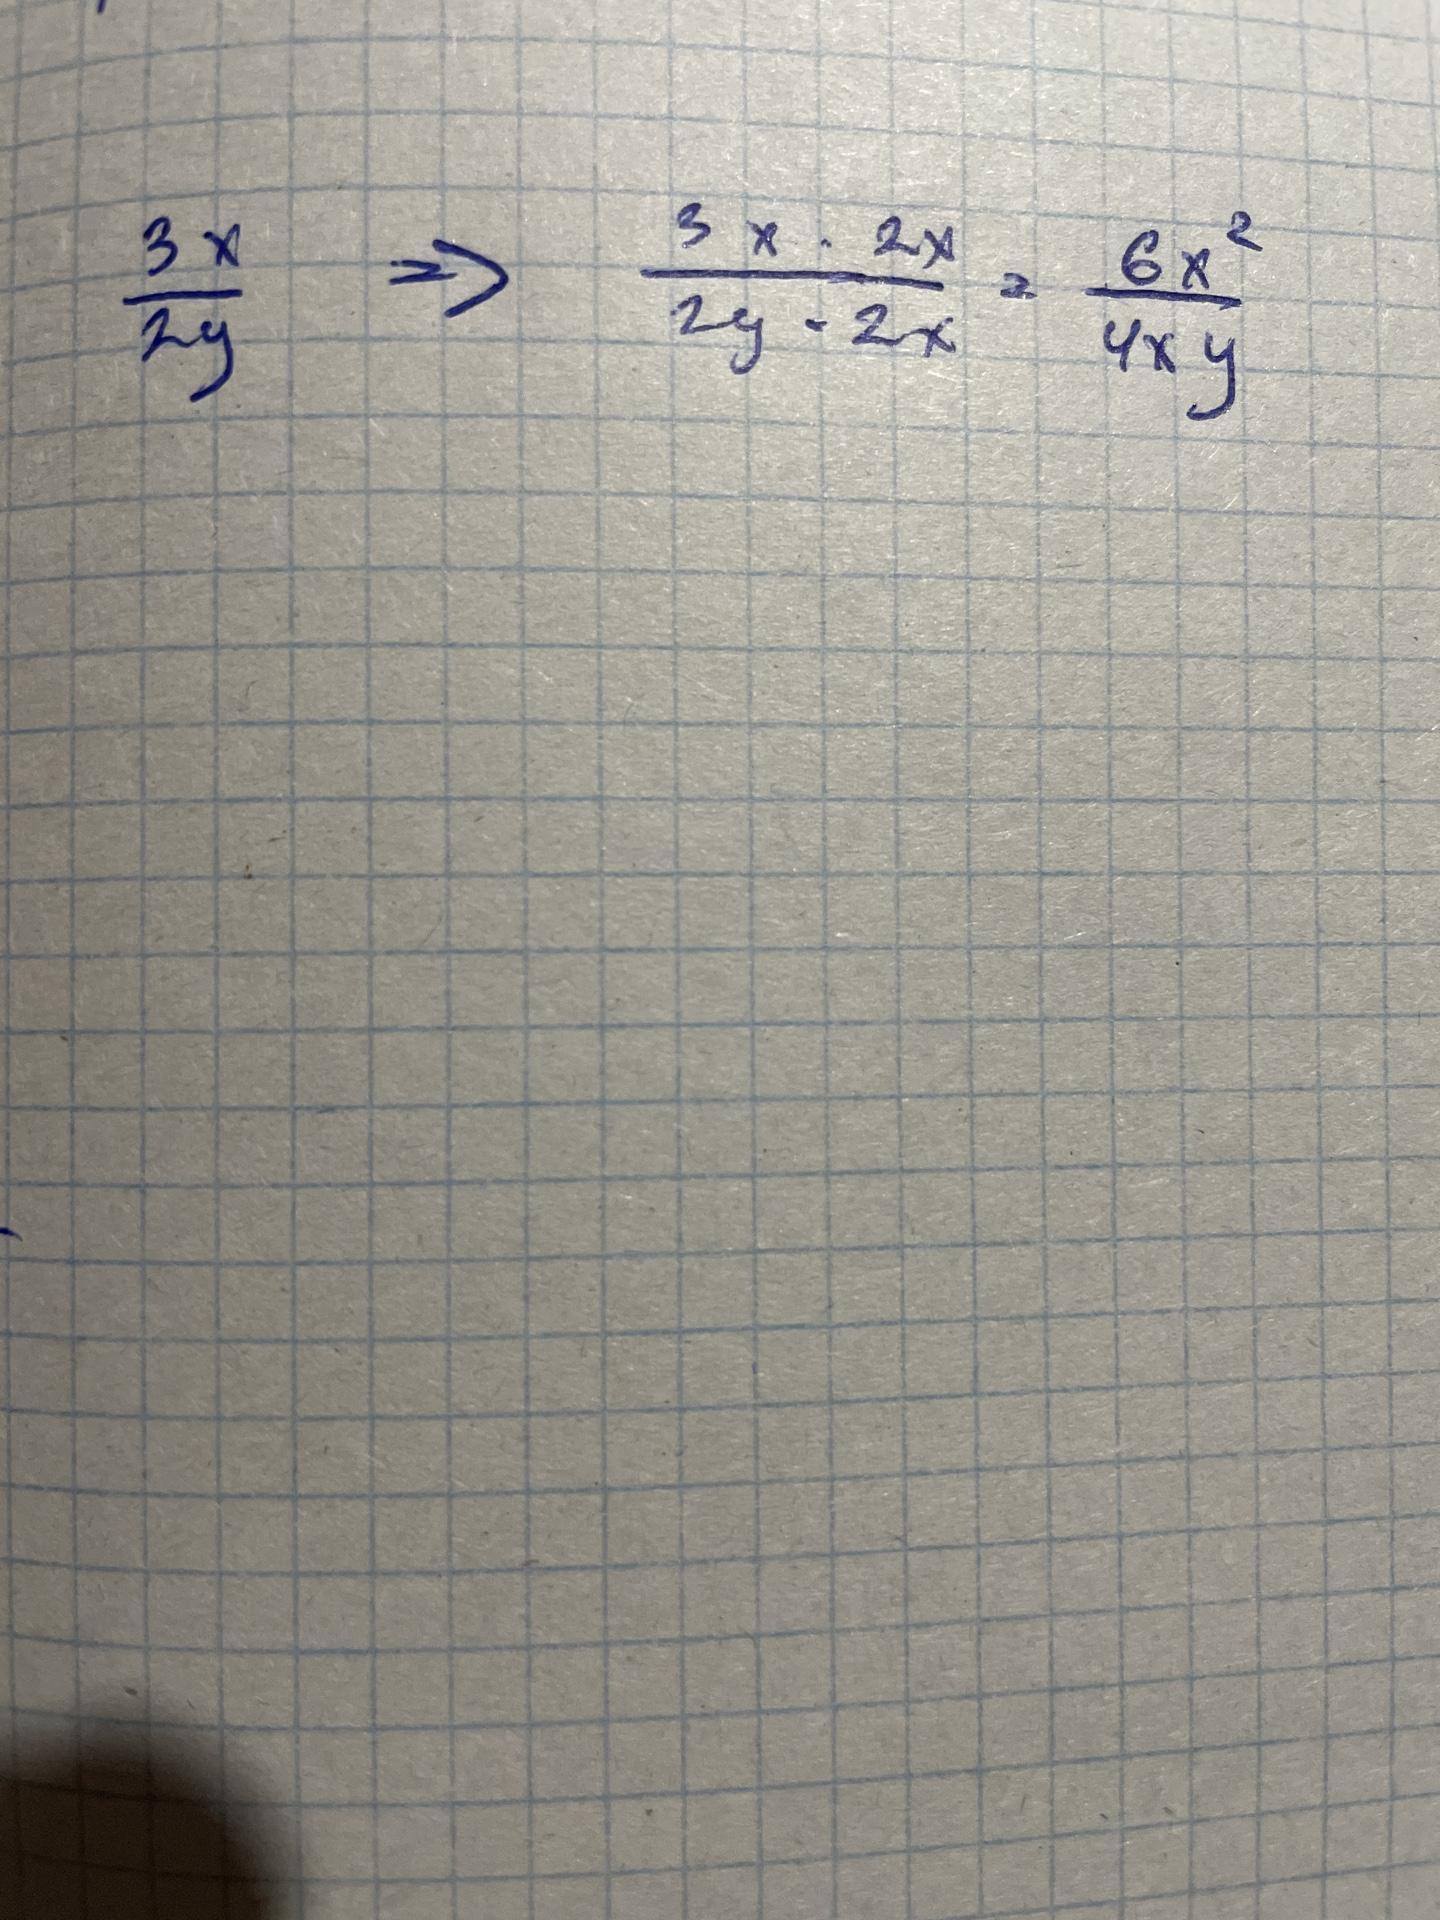 3x/2y => 3x · 2x/2y · 2x = 6x²/4xy